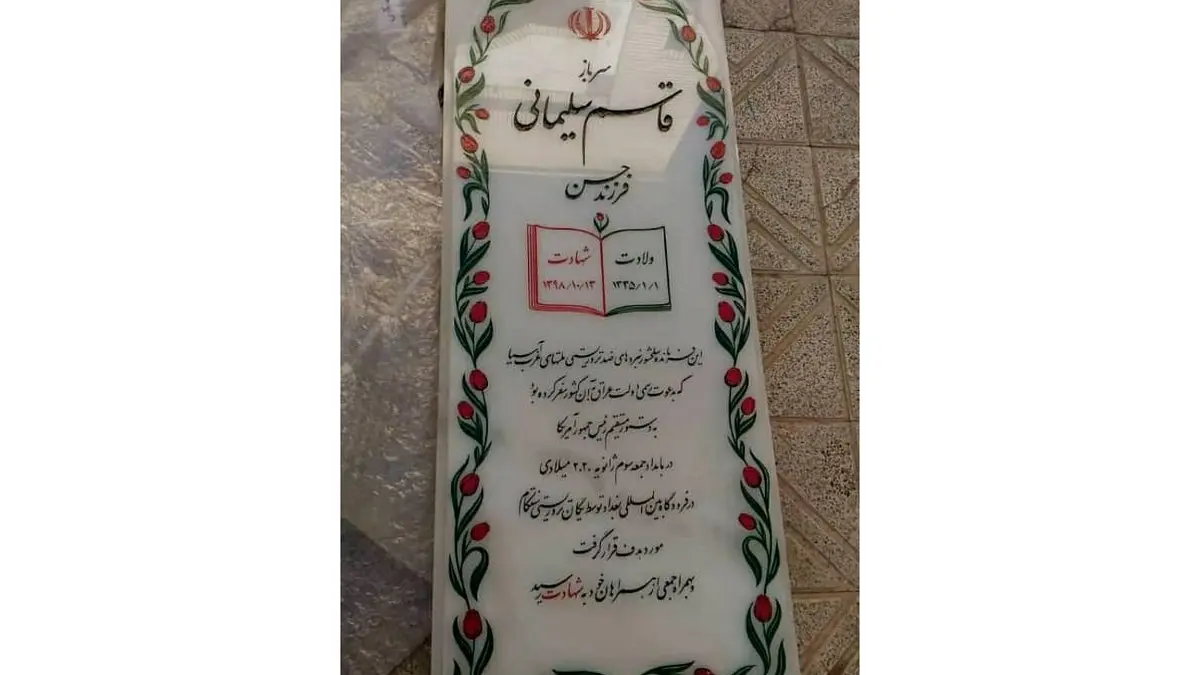 سرباز
قاسم سلیمانی
فرزند حسن
ولادت
۱۳۳۵/۱/۱
شهادت
۱۳۹۸/۱۰/۱۳
این فرمانده سلحشور نبردهای ضد تروریستی ملتهای غرب آسیا
که به دعوت رسمی دولت عراق به آن کشور سفر کرده بود
به دستور مستقیم رئیس جمهور آمریکا
در بامداد جمعه سوم ژانویه ۲۰۲۰ میلادی
در فرودگاه بین المللی بغداد توسط یگان تروریستی سنتکام
مورد هدف قرار گرفت
و بهمراه جمعی از همراهان خود به شهادت رسید